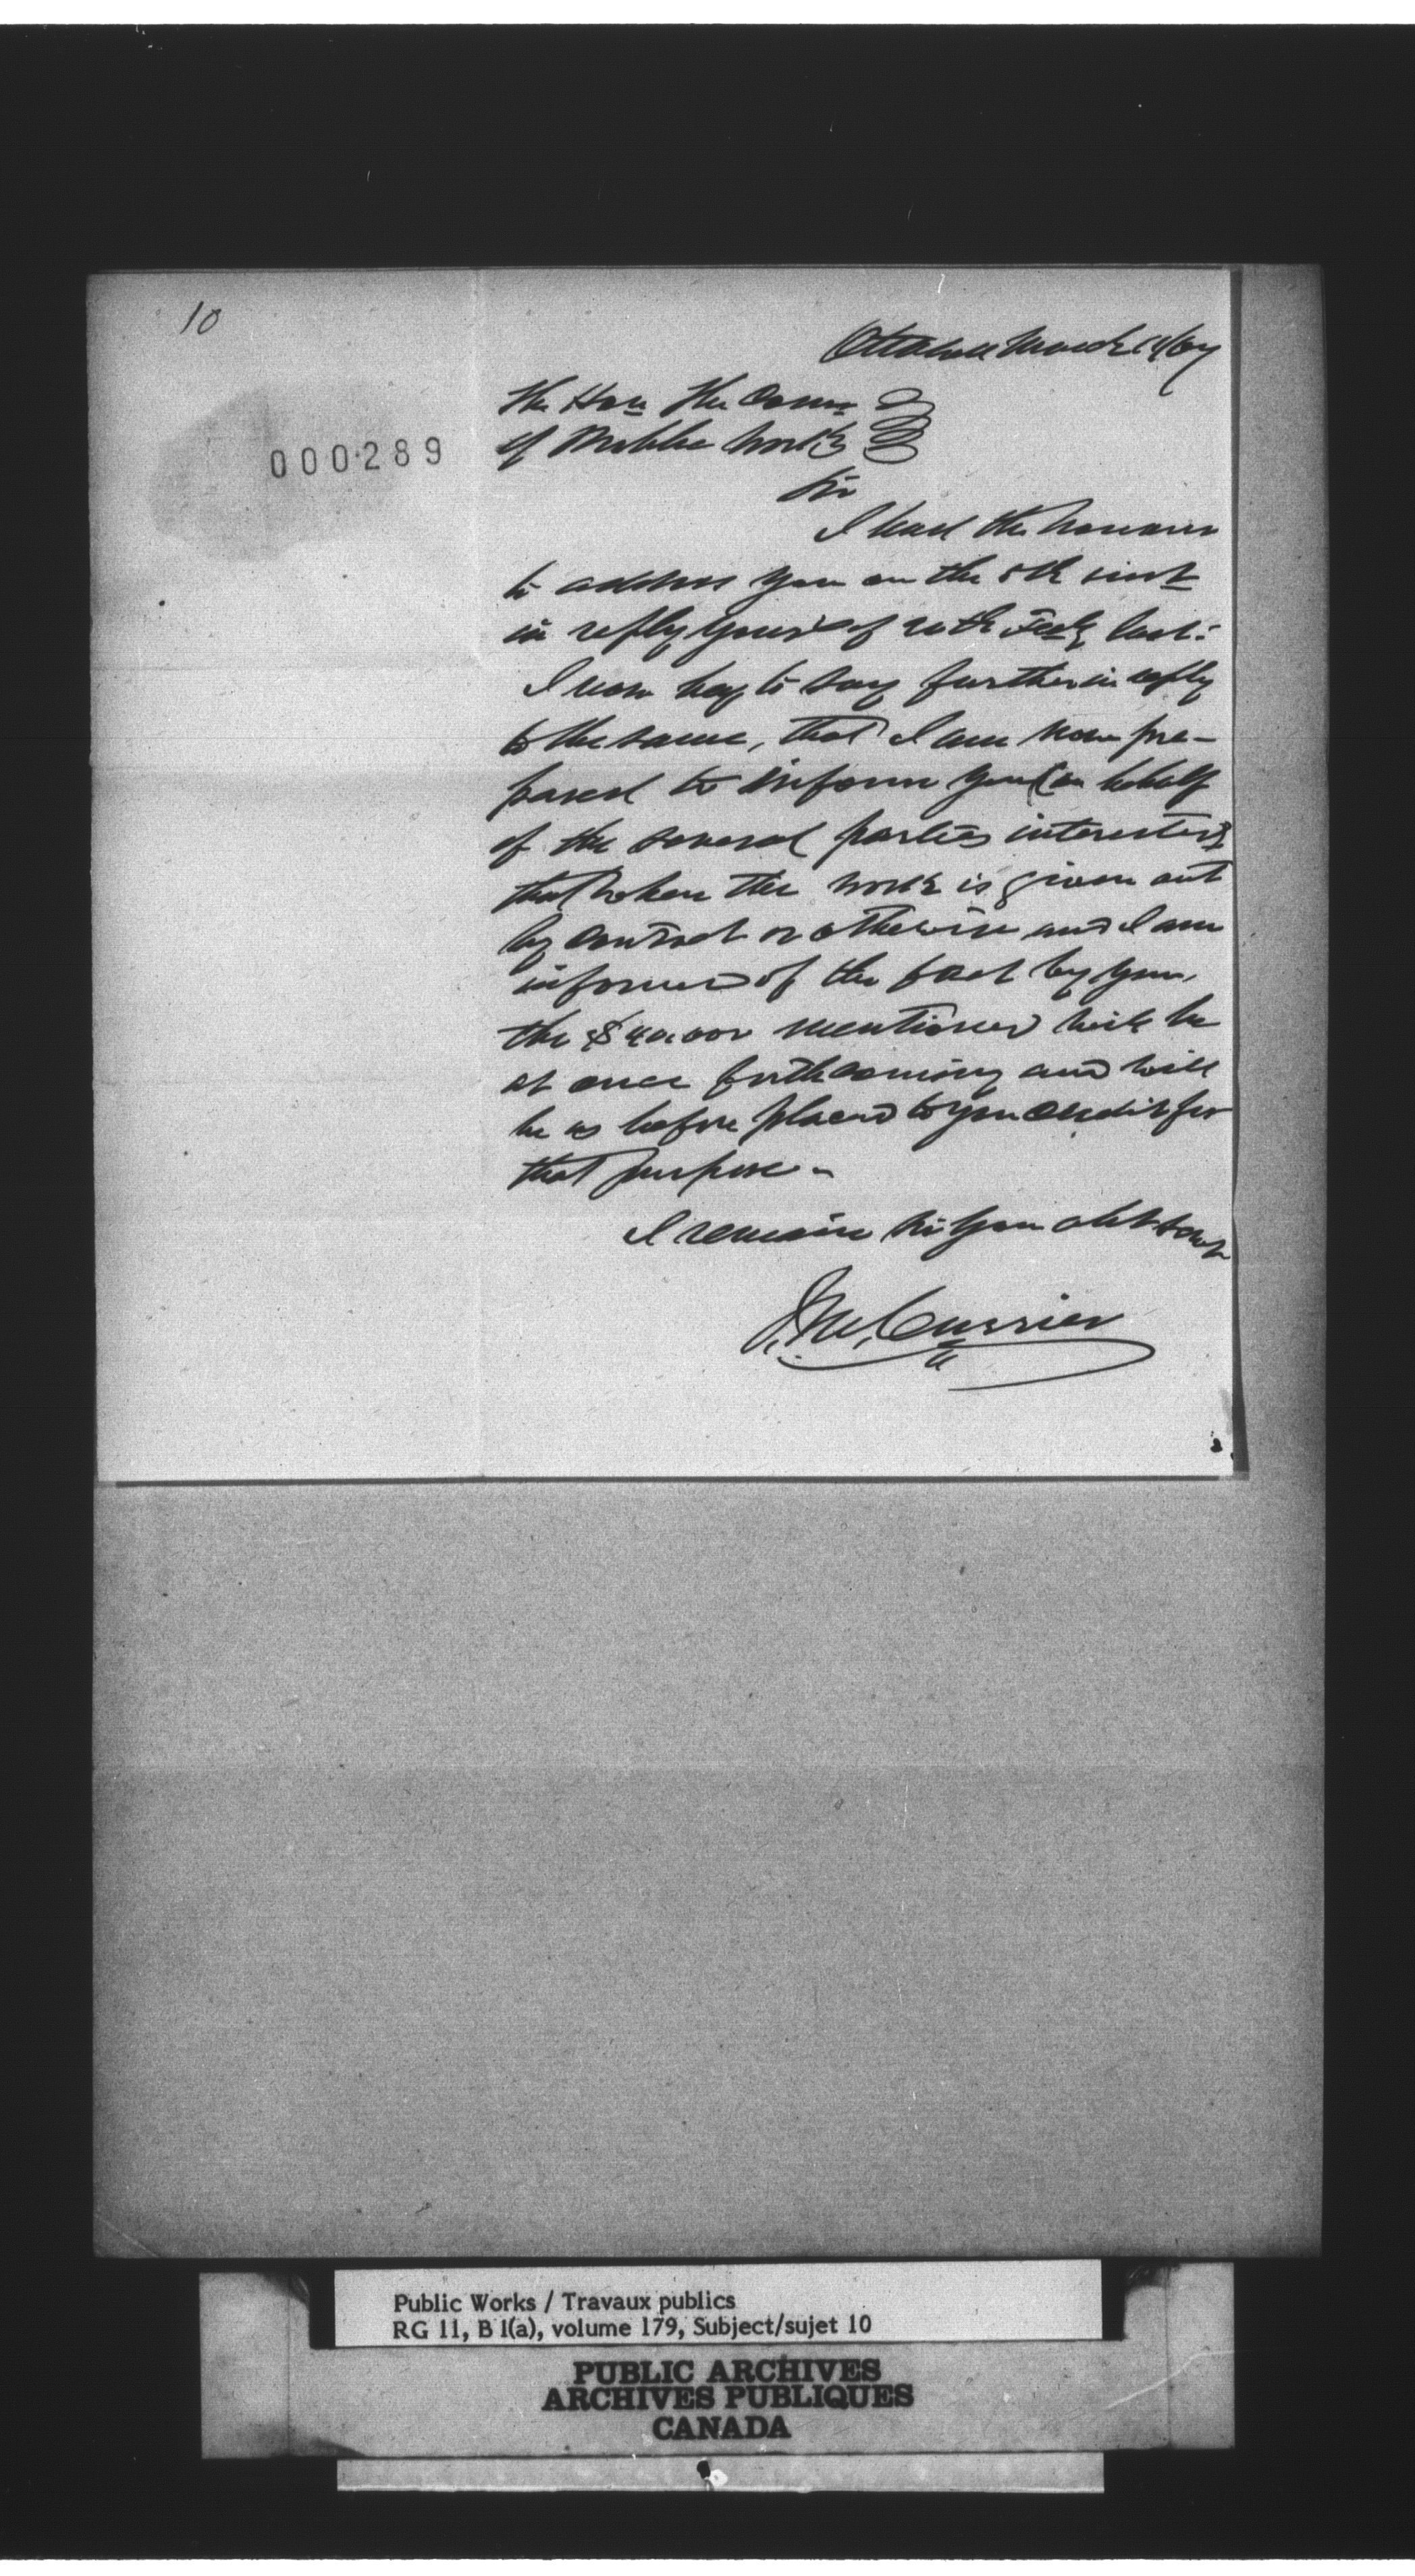 10
Ottawa March 11/67
000289
The Hon The Comr
of Public Works
Sir
I had the honour
to address you on the 8th inst
in reply yours of 20th Feby last.
I now beg to say further in reply
to the same, that I am now pre-
pared to inform you (on behalf
of the several parties interested)
that when the work is given out
by contract or otherwise and I am
informed of the fact by you,
the $40,000 mentioned will be
at once forthcoming and will
be as before placed to your credit for
that purpose -
I remain Sir your obt Servt
J. M. Currier
Public Works / Travaux publics
RG 11, B 1(a), volume 179, Subject/sujet 10
PUBLIC ARCHIVES
ARCHIVES PUBLIQUES
CANADA